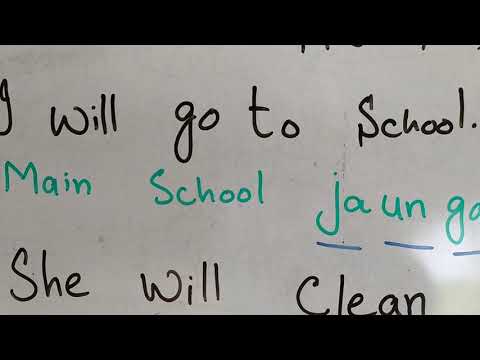 I will go to School.
Main School jaun ga
She will Clean